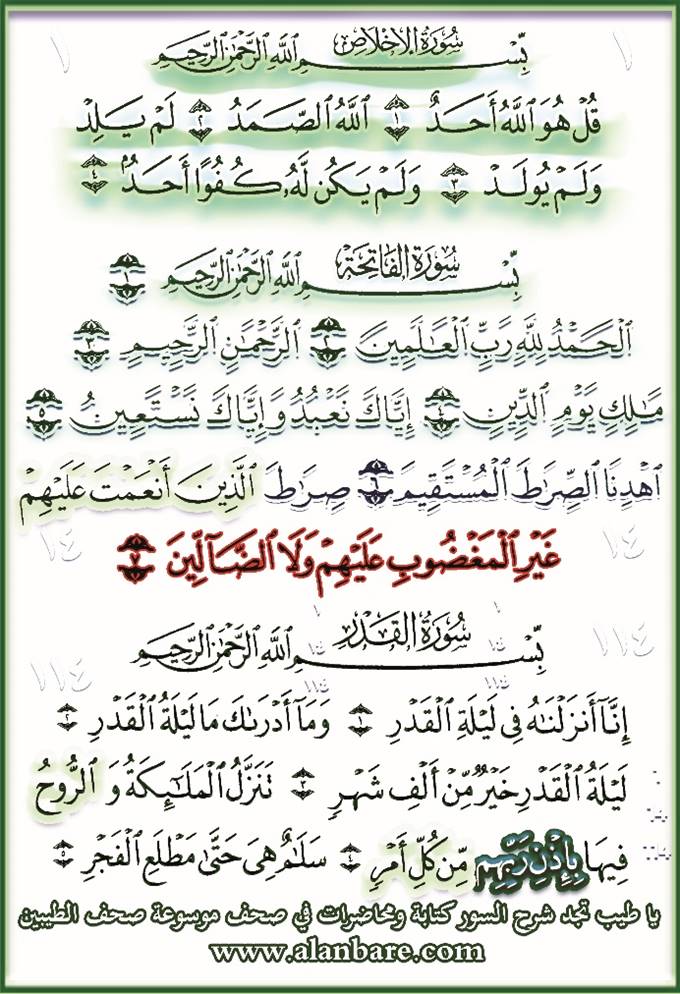 سُورَةُ الإِخْلَاصِ
١ بِّسْمِ اللَّهِ الرَّحْمَٰنِ الرَّحِيمِ ١
قُلْ هُوَ اللَّهُ أَحَدٌ ١ اللَّهُ الصَّمَدُ ٢ لَمْ يَلِدْ
وَلَمْ يُولَدْ ٣ وَلَمْ يَكُن لَّهُ كُفُوًا أَحَدٌ ٤
سُورَةُ الفَاتِحَةِ
بِّسْمِ اللَّهِ الرَّحْمَٰنِ الرَّحِيمِ ١
الْحَمْدُ لِلَّهِ رَبِّ الْعَالَمِينَ ٢ الرَّحْمَٰنِ الرَّحِيمِ ٣
مَالِكِ يَوْمِ الدِّينِ ٤ إِيَّاكَ نَعْبُدُ وَإِيَّاكَ نَسْتَعِينُ ٥
اهْدِنَا الصِّرَاطَ الْمُسْتَقِيمَ ٦ صِرَاطَ الَّذِينَ أَنْعَمْتَ عَلَيْهِمْ
١٤ غَيْرِ الْمَغْضُوبِ عَلَيْهِمْ وَلَا الضَّآلِّينَ ٧ ١٤
سُورَةُ القَدْرِ
١١٤ بِّسْمِ اللَّهِ الرَّحْمَٰنِ الرَّحِيمِ ١١٤
إِنَّآ أَنزَلْنَاهُ فِى لَيْلَةِ الْقَدْرِ ١ وَمَآ أَدْرَىٰكَ مَا لَيْلَةُ الْقَدْرِ ٢
لَيْلَةُ الْقَدْرِ خَيْرٌ مِّنْ أَلْفِ شَهْرٍ ٣ تَنَزَّلُ الْمَلَٰٓئِكَةُ وَالرُّوحُ
فِيهَا بِإِذْنِ رَبِّهِم مِّن كُلِّ أَمْرٍ ٤ سَلَٰمٌ هِىَ حَتَّىٰ مَطْلَعِ الْفَجْرِ ٥
يا طيب تجد شرح السور كتابة ومحاضرات في صحف موسوعة صحف الطيبين
www.alanbare.com